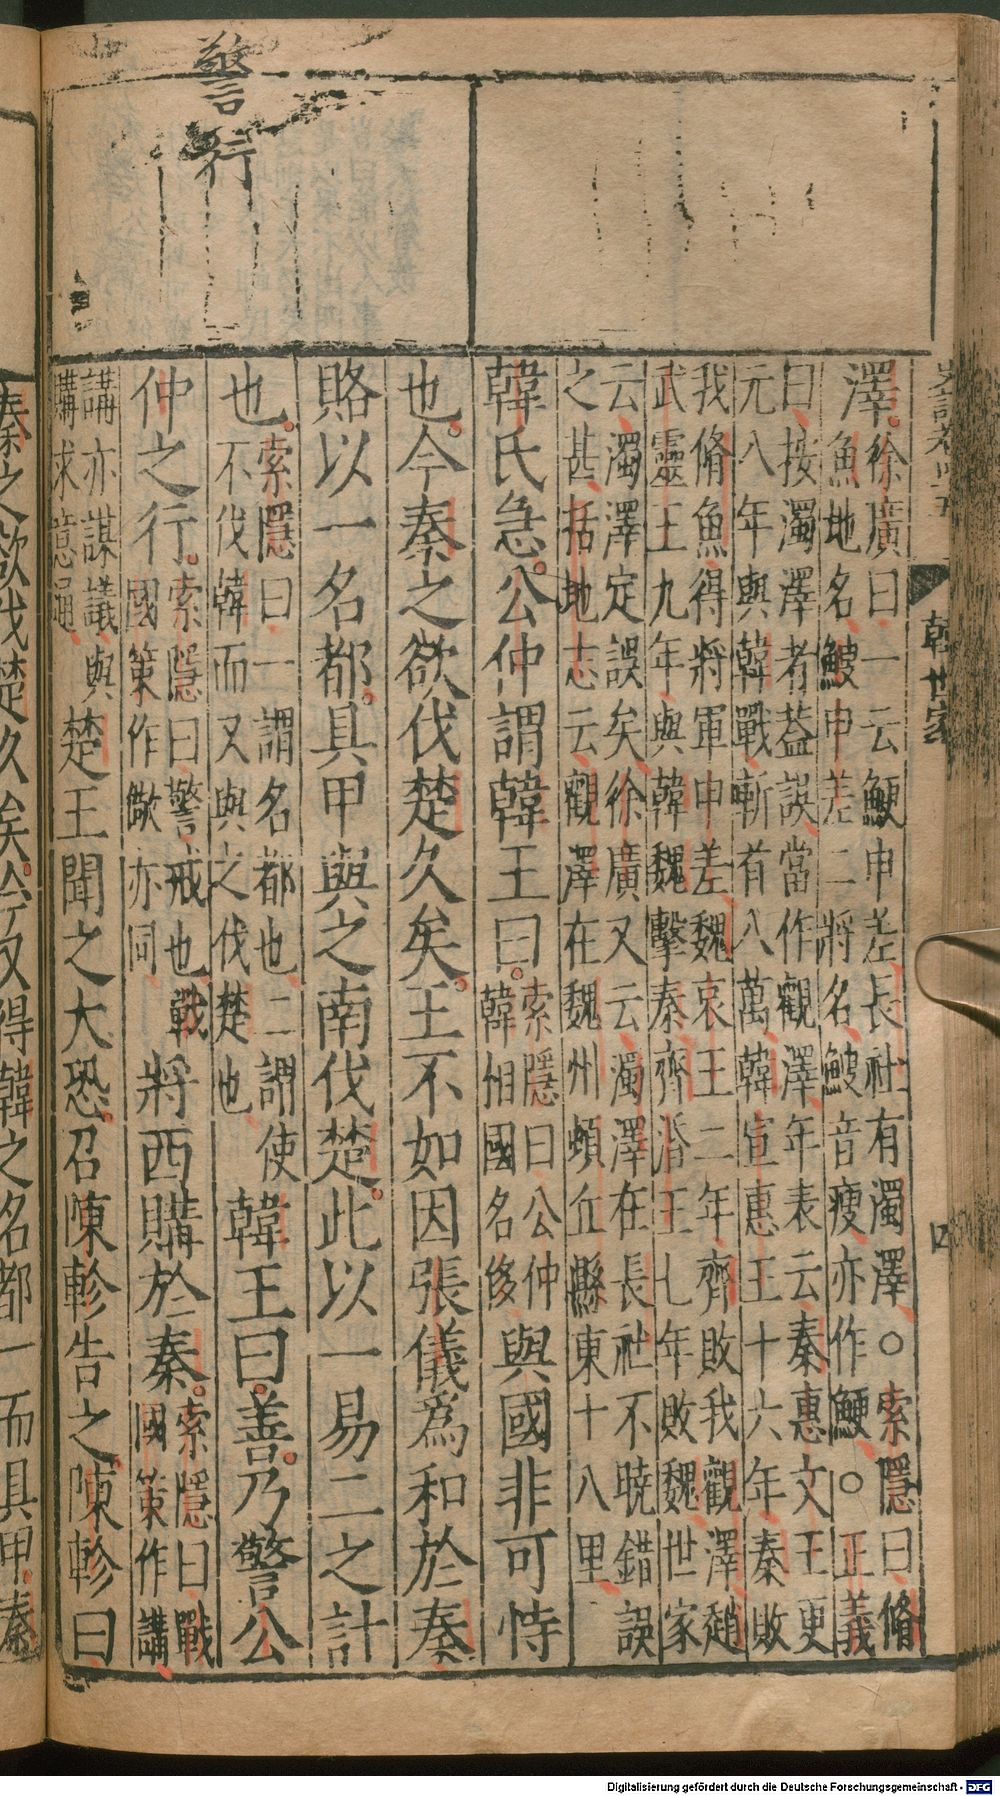 警行
史記卷四十五
韓世家
四
澤。徐廣曰一云鯁申差長社有濁澤○索隱曰脩
魚地名鯾申差二將名鯾音瘦亦作鯁○正義
曰按濁澤者蓋誤當作觀澤年表云秦惠文王更
元八年與韓戰斬首八萬韓宣惠王十六年秦敗
我脩魚得將軍申差魏哀王二年齊敗我觀澤趙
武靈王九年與韓魏擊秦齊湣王七年敗魏世家
云濁澤定誤矣徐廣又云濁澤在長社不曉錯誤
之甚括地志云觀澤在魏州頓丘縣東十八里
韓氏急。公仲謂韓王曰。索隱曰公仲
韓相國名侈與國非可恃
也。今秦之欲伐楚久矣。王不如因張儀爲和於秦
賂以一名都。具甲與之南伐楚。此以一易二之計
也。索隱曰一謂名都也二謂使
不伐韓而又與之伐楚也韓王曰。善。乃警公
仲之行。索隱曰警戒也戰
國策作儆亦同將西購於秦。索隱曰戰
國策作講
講亦謀議與
購求意通楚王聞之大恐。召陳軫告之。陳軫曰
秦之欲伐楚久矣。今又得韓之名都一而具甲。秦
Digitalisierung gefördert durch die Deutsche Forschungsgemeinschaft - DFG